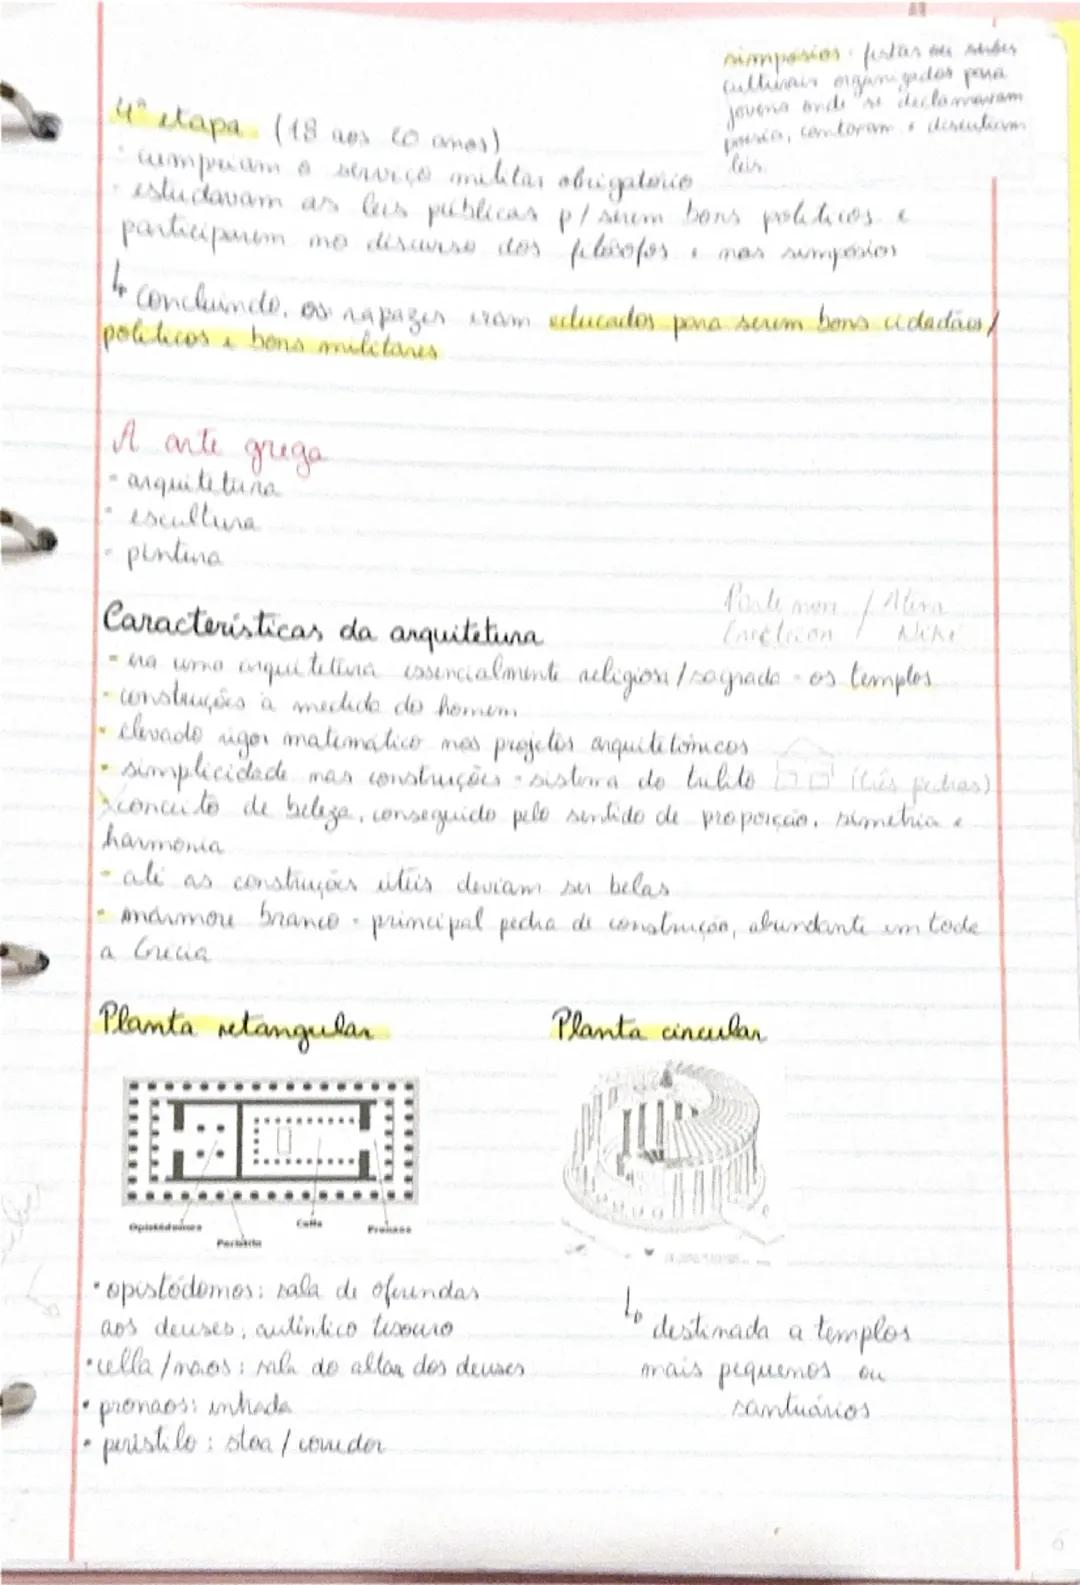 simposios: festas ou serões
culturais organizados para
jovens onde se declamavam
poesia, cantavam e discutiam
leis
4ª etapa (18 aos 20 anos)
- cumpriam o serviço militar obrigatório
- estudavam as leis públicas p/ serem bons politicos e
participarem no discurso dos filósofos e nos simpósios
↳ Concluindo, os rapazes eram educados para serem bons cidadãos/
politicos e bons militares
A arte grega
- arquitetura
- escultura
- pintura
Partenon / Atena
Niké
Características da arquitetura
- era uma arquitetura essencialmente religiosa/sagrada - os templos
- construções à medida do homem
- elevado rigor matemático nos projetos arquitetónicos
- simplicidade nas construções - sistema do trilito (três pedras)
conceito de beleza, conseguido pelo sentido de proporção, simetria e
harmonia
- até as construções úteis deviam ser belas
- mármore branco - principal pedra de construção, abundante em toda
a Grécia
Planta retangular
Planta circular
Opistódomos
Cella
Pronaos
Peristilo
• opistódomos: sala de oferendas
aos deuses, autêntico tesouro
• cella/naos: sala do altar dos deuses
• pronaos: entrada
• peristilo: stoa / corredor
↳ destinada a templos
mais pequenos ou
santuários